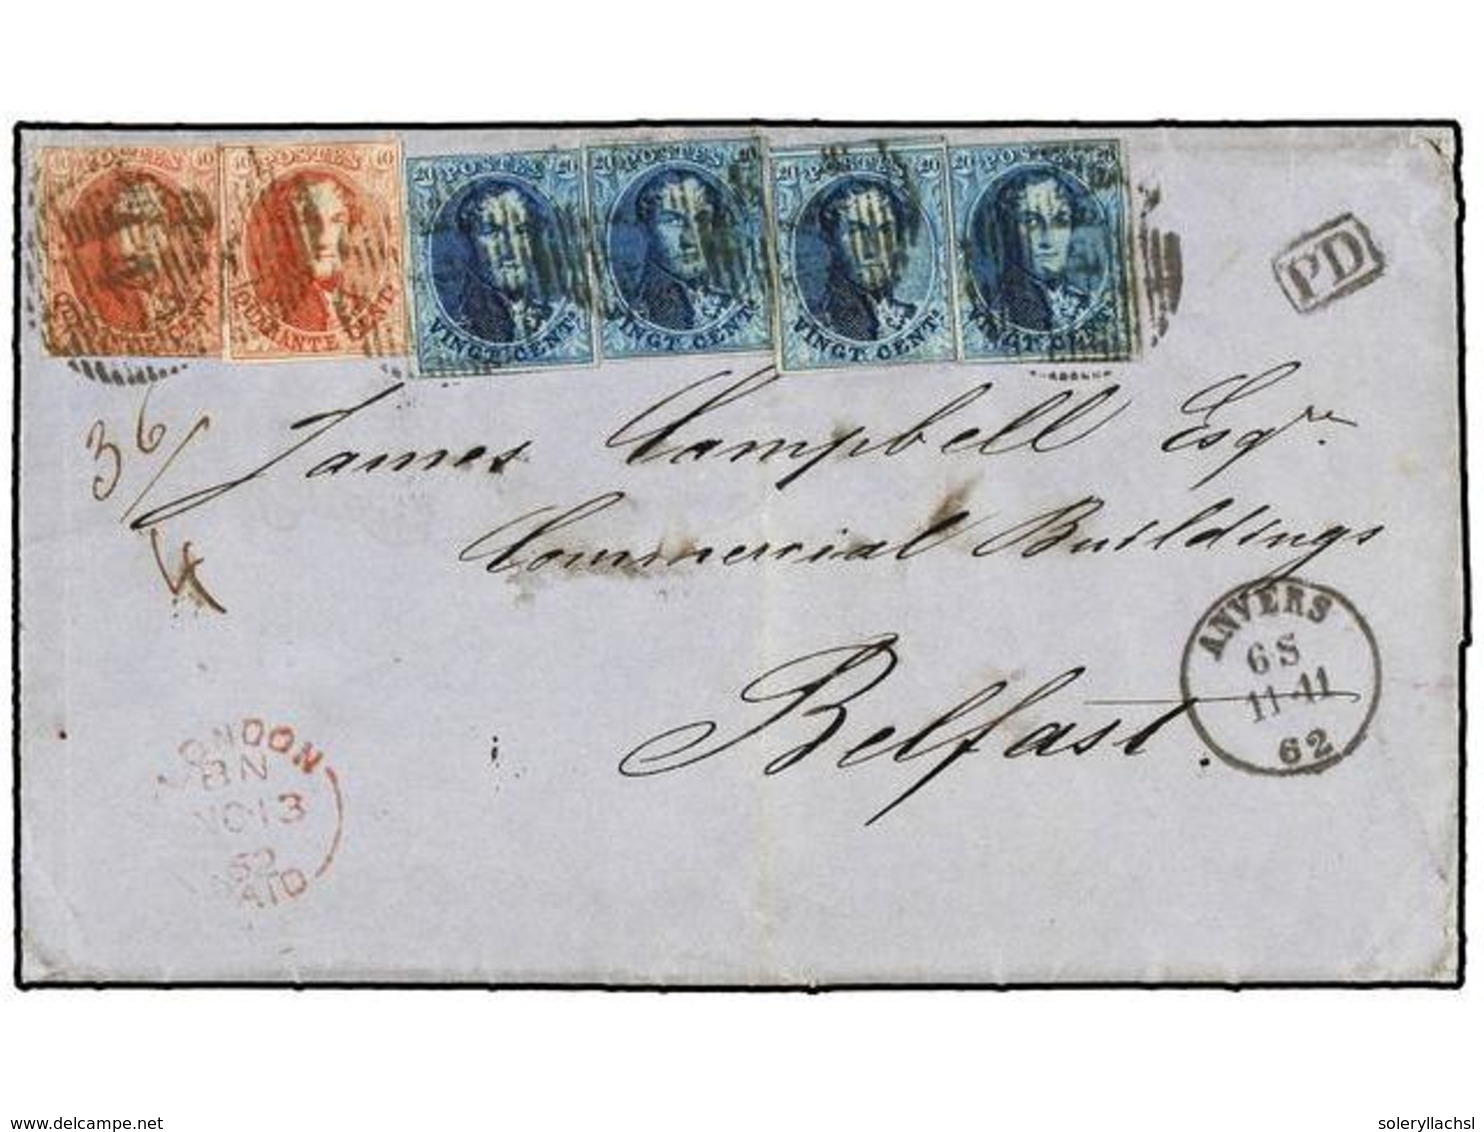 40 POSTES 40
40 POSTES 40
20 POSTES 20
20 POSTES 20
20 POSTES 20
20 POSTES 20
QUARANTE CENT.
QUARANTE CENT.
VINGT. CENTS
VINGT. CENTS
VINGT. CENTS
VINGT. CENTS
PD
36/
4
James Campbell Esqre
Commercial Buildings
Belfast.
ANVERS
6S
11-11
62
LONDON
BN
NO 13
62
PAID
www.delcampe.net
soleryllachsl